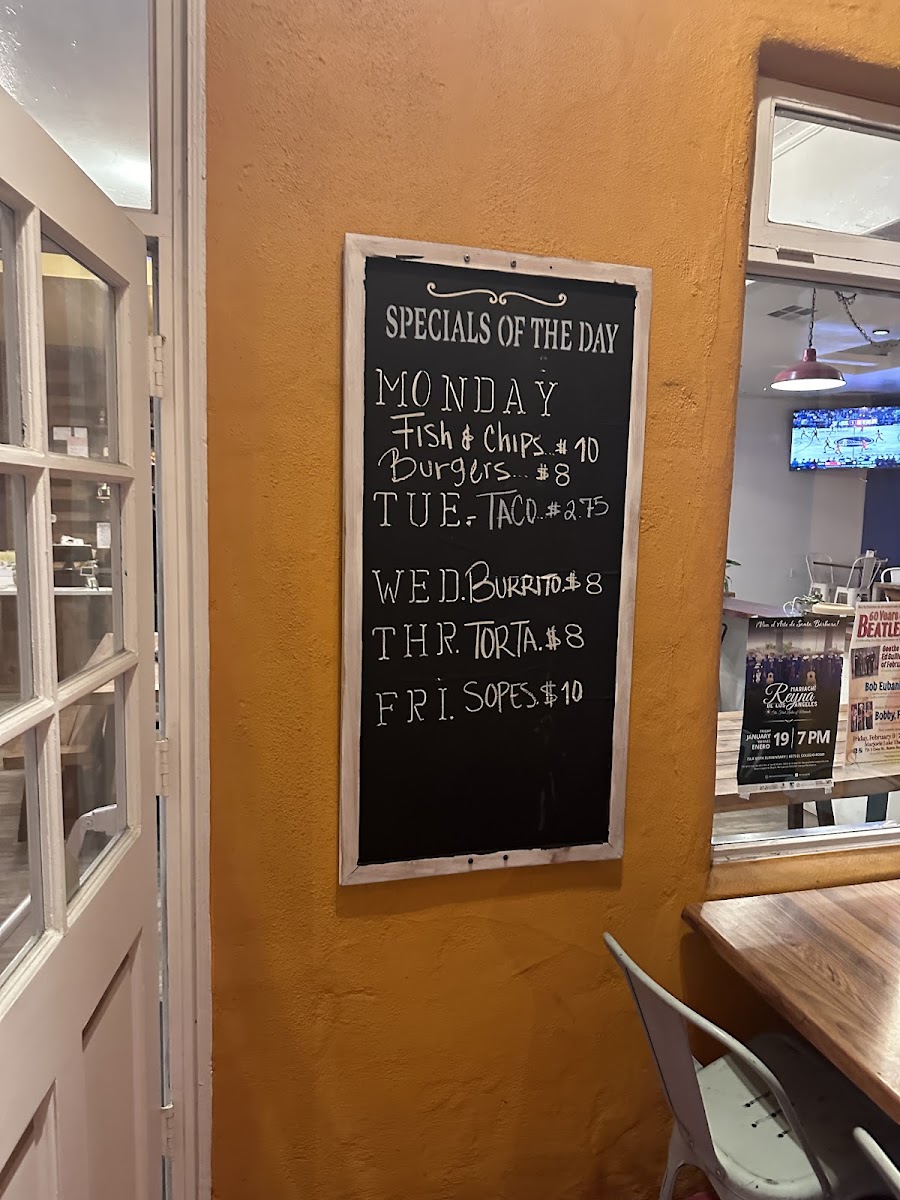 SPECIALS OF THE DAY
MONDAY
Fish & Chips...$10
Burgers...$8
TUE. TACO..$2.75
WED. BURRITO.$8
THR. TORTA.$8
FRI. SOPES.$10
¡Viva el Arte de Santa Bárbara!
MARIACHI
Reyna
DE LOS ANGELES
JANUARY
ENERO
19
7 PM
60 Years
BEATLE
Bob Euban
Bobby,